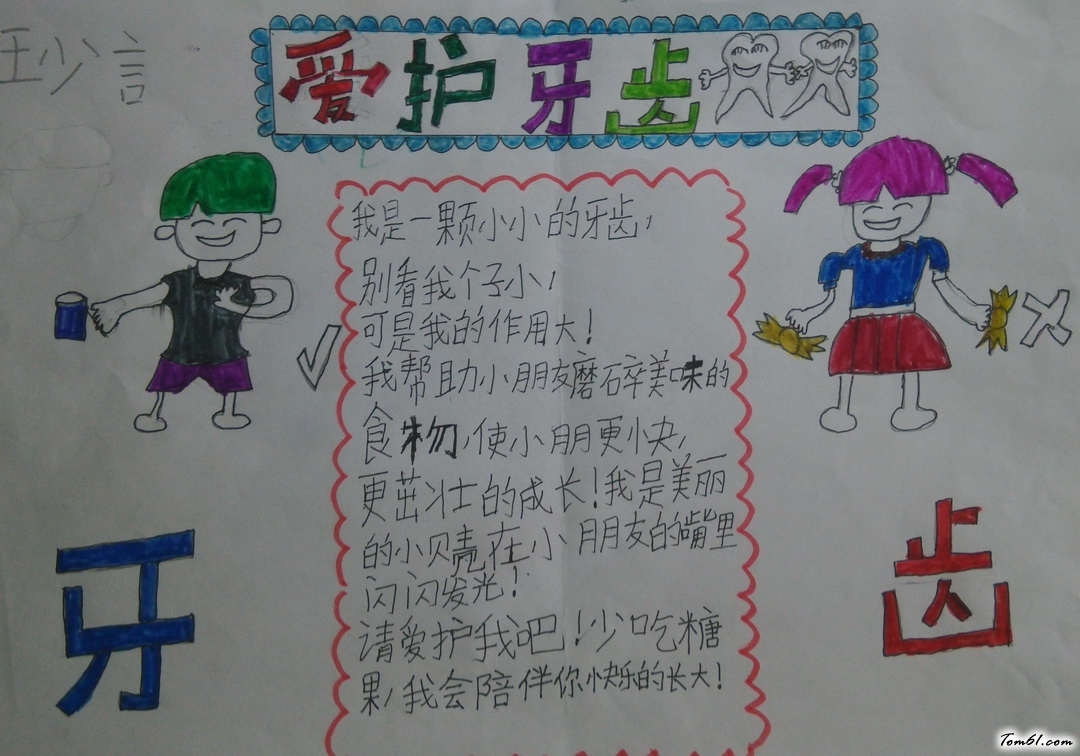 王少言
爱护牙齿
我是一颗小小的牙齿,
别看我个子小,
可是我的作用大!
我帮助小朋友磨碎美味的
食物,使小朋更快,
更茁壮的成长!我是美丽
的小贝壳在小朋友的嘴里
闪闪发光!
请爱护我吧!少吃糖
果,我会陪伴你快乐的长大!
牙
齿
Tom61.com